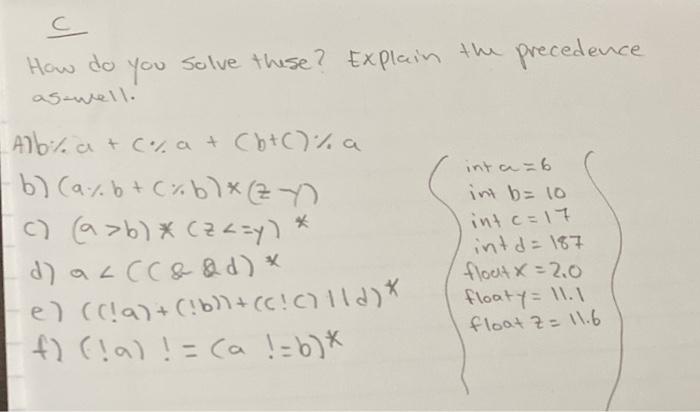 C
How do you solve these? Explain the precedence
as-well.
A) b % a + c % a + (b+c) % a
b) (a % b + c % b) * (z - y)
c) (a > b) * (z <= y) *
d) a < (c && d) *
e) ((!a) + (!b)) + ((!c) || d) *
f) (!a) != (a != b) *
int a = 6
int b = 10
int c = 17
int d = 187
float x = 2.0
float y = 11.1
float z = 11.6